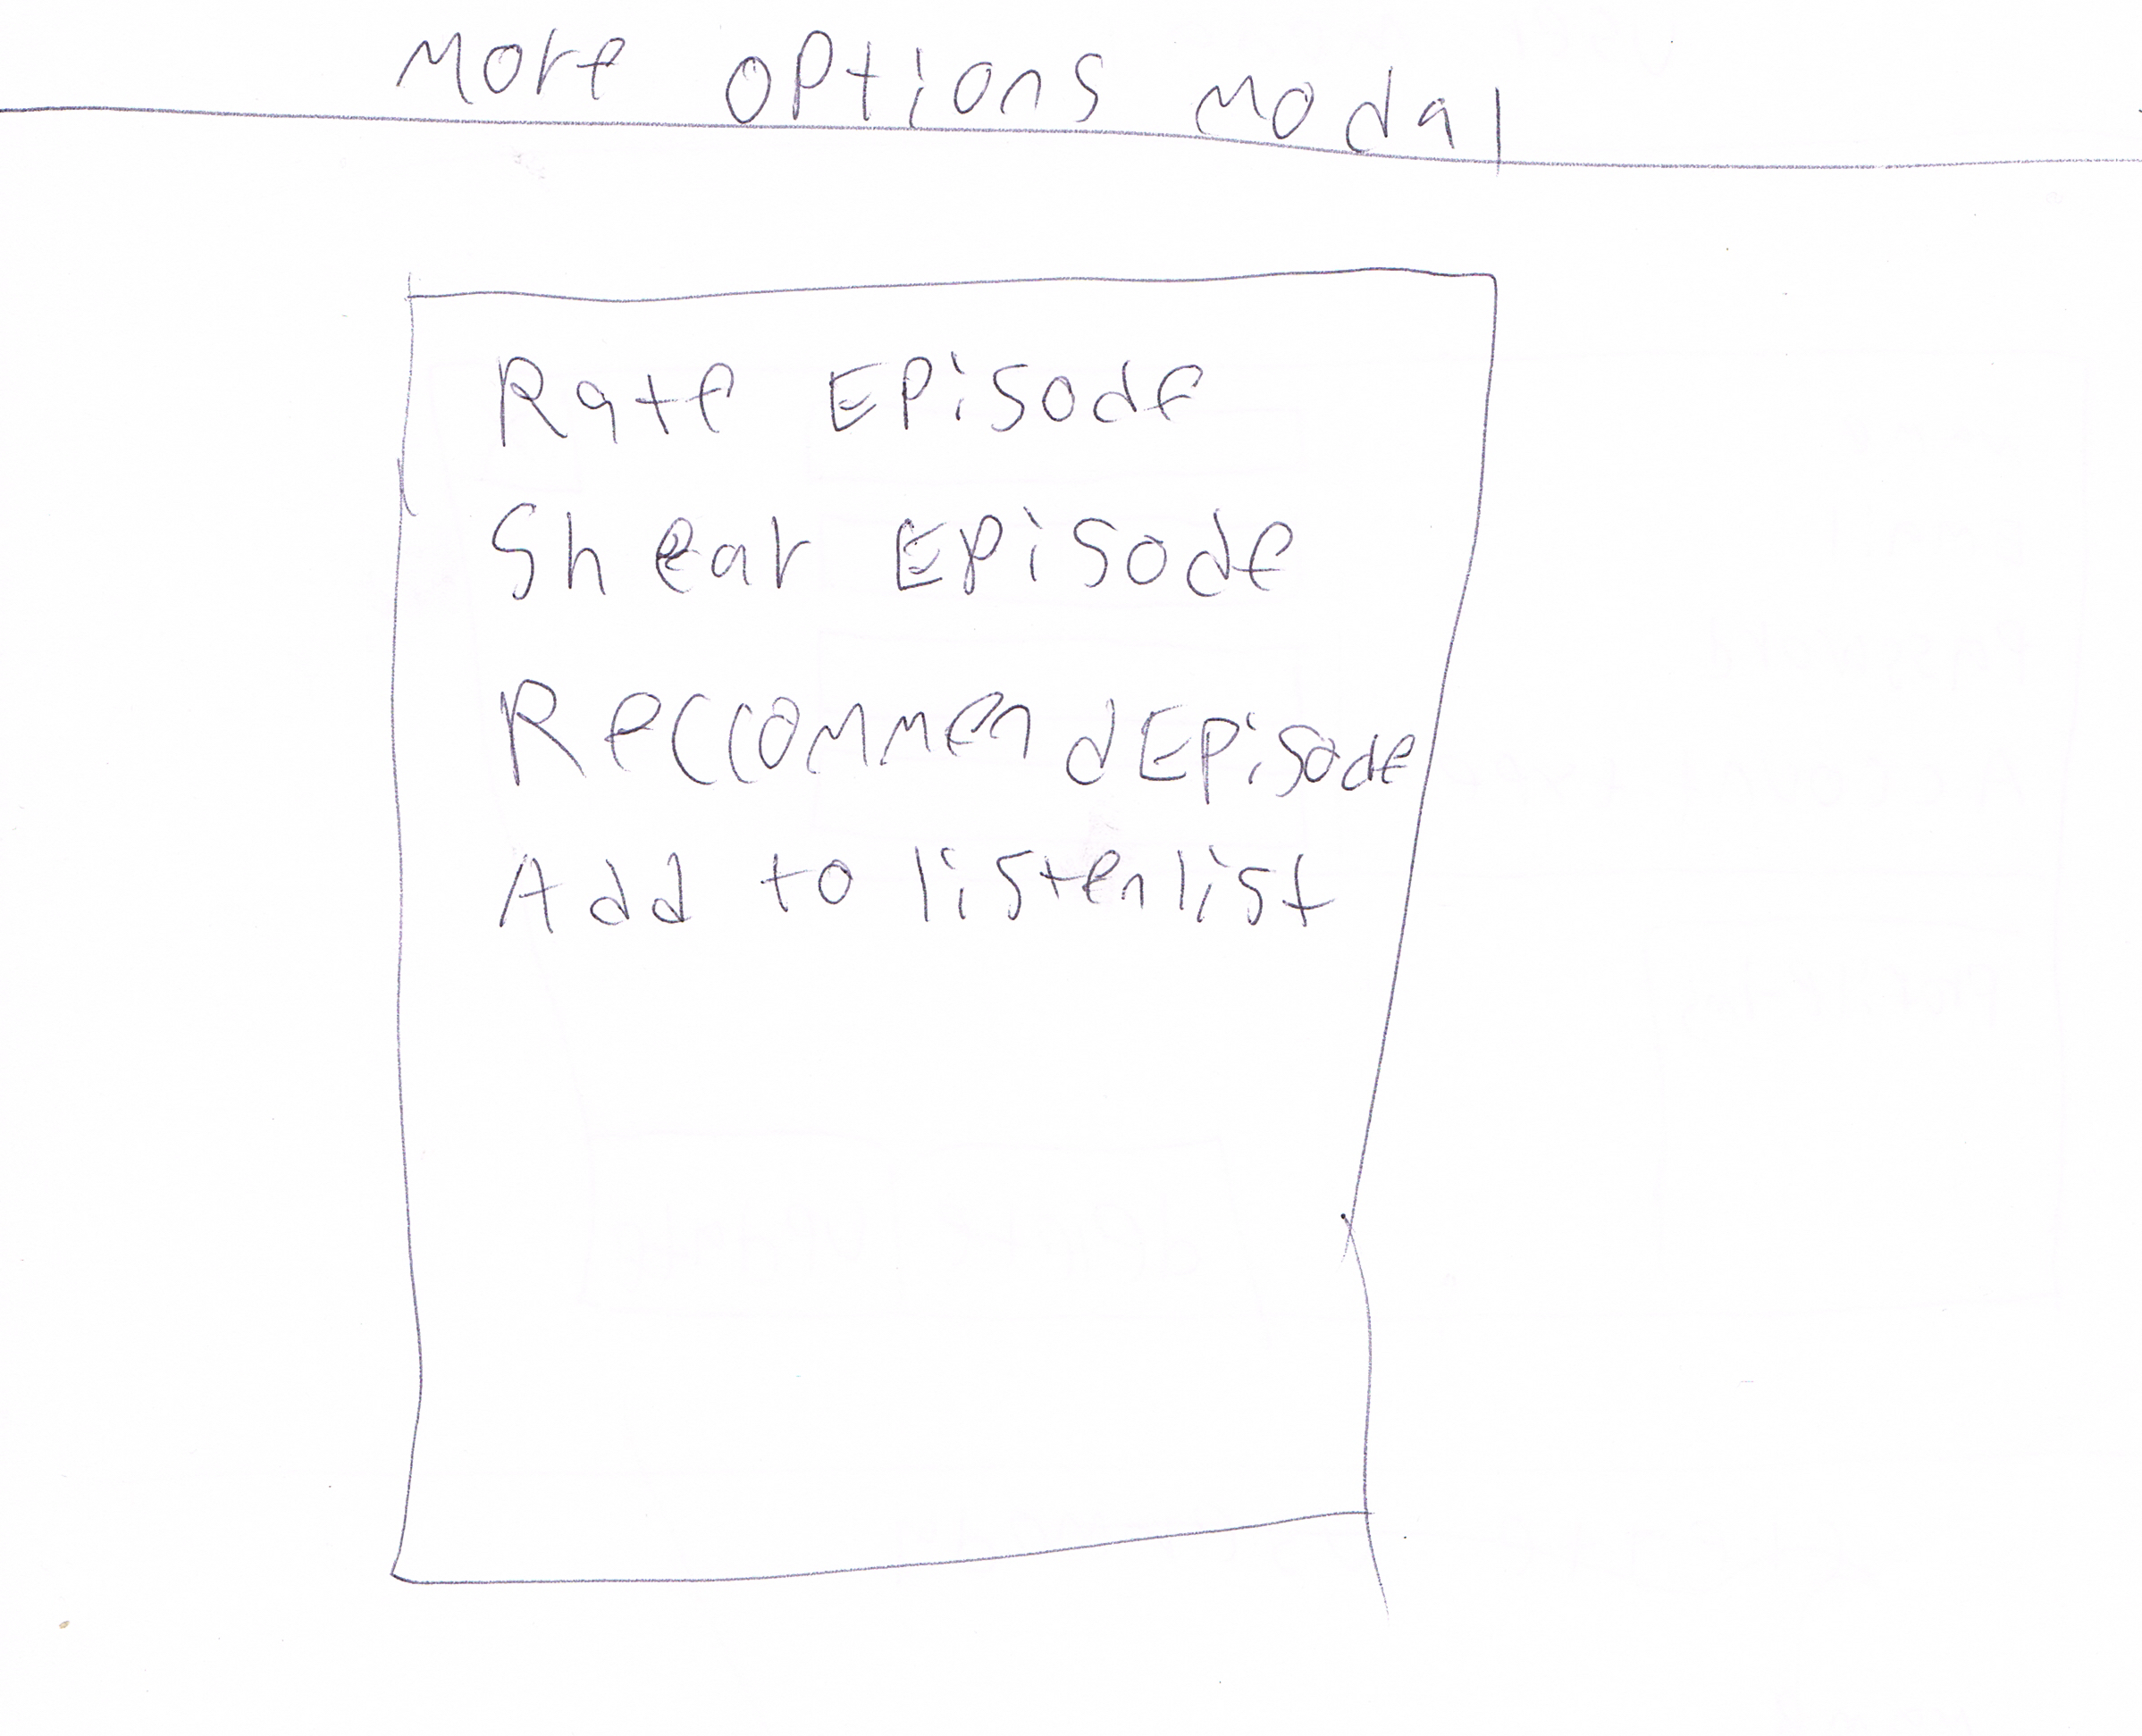 More options modal
Rate Episode
Shear Episode
Reccommend Episode
Add to listenlist